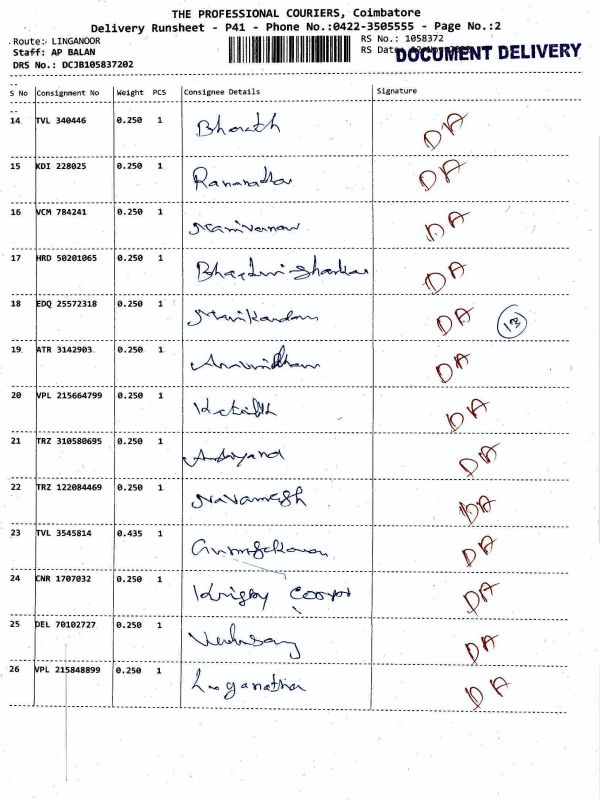 THE PROFESSIONAL COURIERS, Coimbatore
Delivery Runsheet - P41 - Phone No.:0422-3505555 - Page No.:2
Route: LINGANOOR
RS No.: 1058372
Staff: AP BALAN
RS Date:
DOCUMENT DELIVERY
DRS No.: DCJB105837202
S No Consignment No Weight PCS Consignee Details Signature
14 TVL 340446 0.250 1 Bharath DA
15 KDI 228025 0.250 1 DA
16 VCM 784241 0.250 1 Manivannan DA
17 HRD 50201065 0.250 1 DA
18 EDQ 25572318 0.250 1 Manikandan DA 13
19 ATR 3142903 0.250 1 DA
20 VPL 215664799 0.250 1 DA
21 TRZ 310580695 0.250 1 DA
22 TRZ 122084469 0.250 1 Navamegh DA
23 TVL 3545814 0.435 1 DA
24 CNR 1707032 0.250 1 DA
25 DEL 70102727 0.250 1 DA
26 VPL 215848899 0.250 1 DA